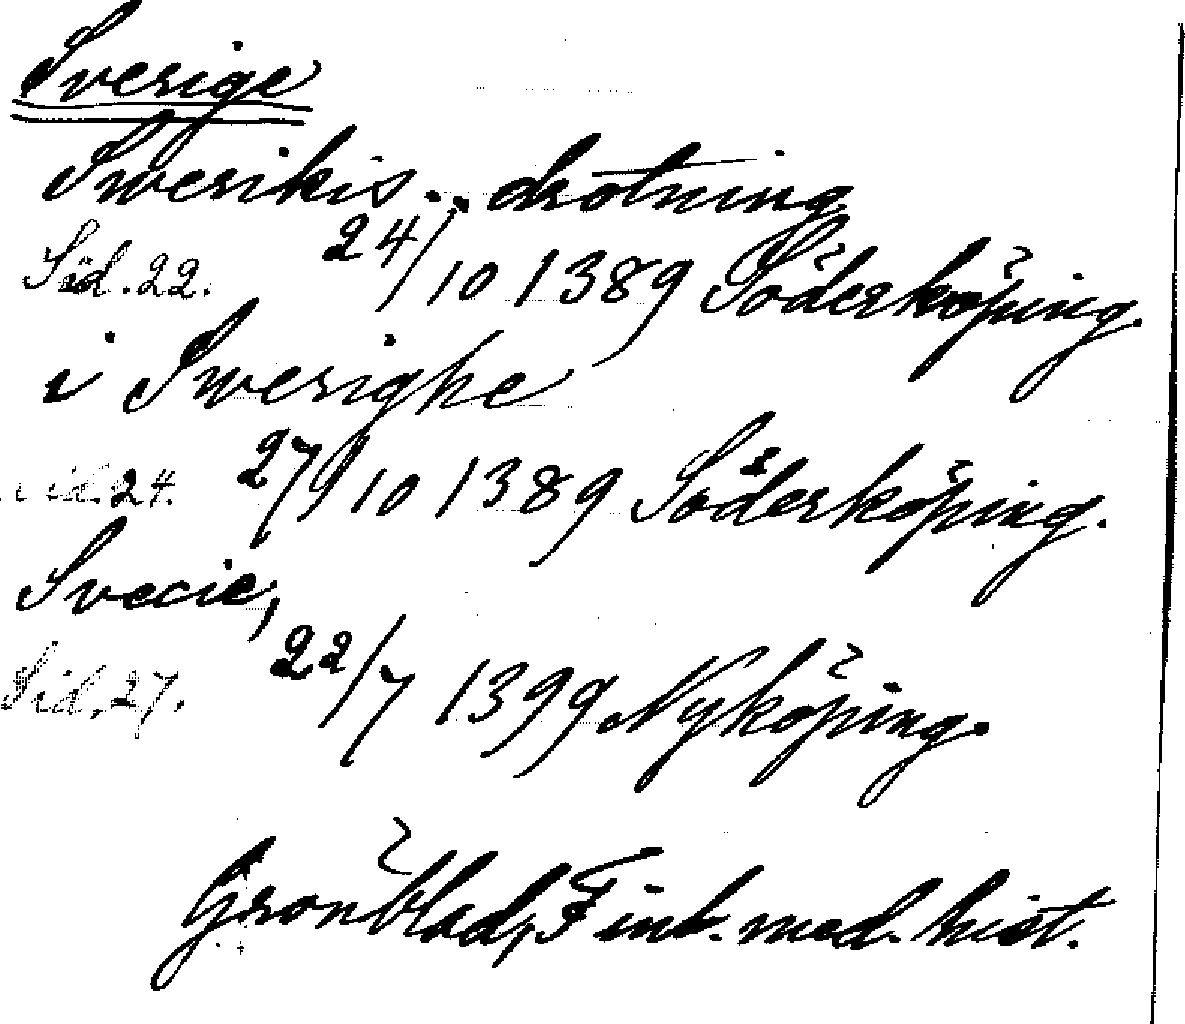 Sverige
Swerikis .. drotning
Sid. 22. 24/10 1389 Söderköping.
i Swerighe
Sid. 24. 27/10 1389 Söderköping.
Svecie,
Sid. 27. 22/7 1399 Nyköping.
Grönblad, Fink. med. hist.